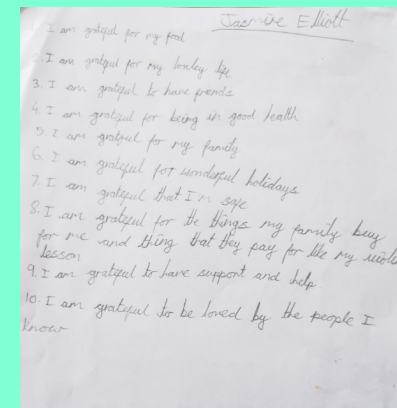 Jasmine Elliott
I am grateful for my food
2. I am grateful for my lovley life
3. I am grateful to have friends
4. I am grateful for being in good health
5. I am grateful for my family
6. I am grateful for wonderful holidays
7. I am grateful that I'm safe
8. I am grateful for the things my family buy
for me and thing that they pay for like my
lesson
9. I am grateful to have support and help
10. I am grateful to be loved by the people I
know